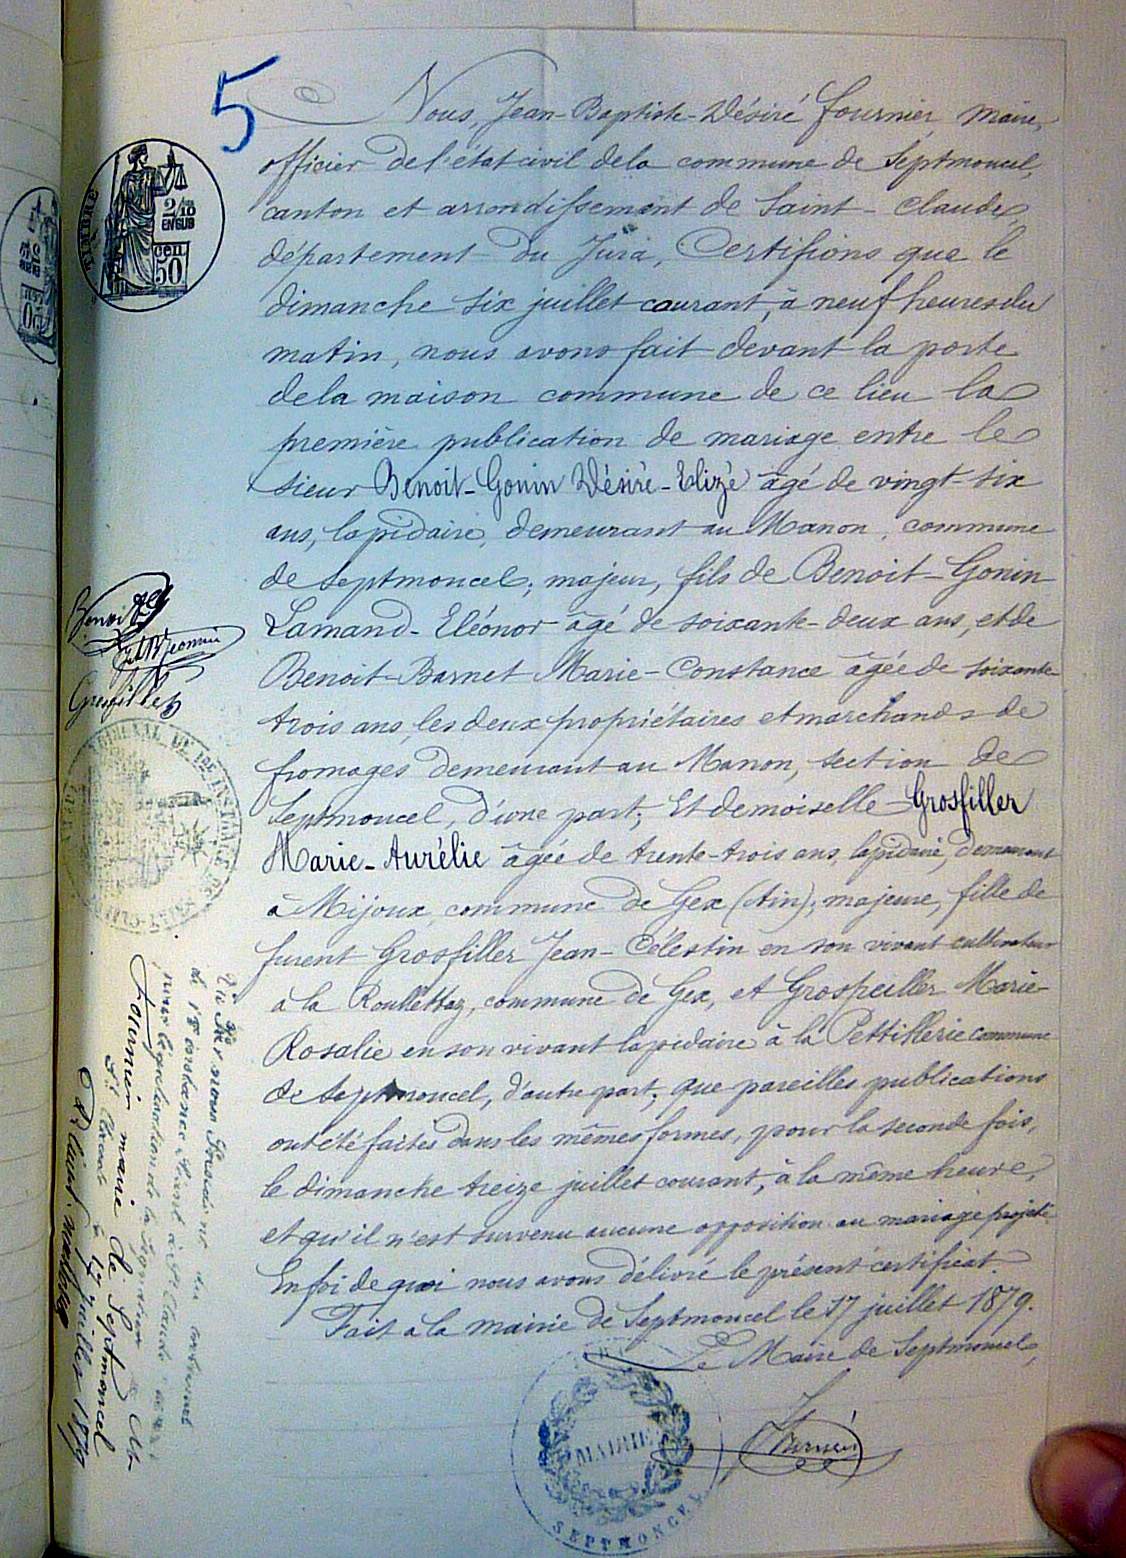 5
TIMBRE
2/10
EN SUS
50
cen
Nous, Jean-Baptiste-Désiré Fournier, maire,
officier de l'état civil de la commune de Septmoncel,
canton et arrondissement de Saint-Claude,
département du Jura, Certifions que le
dimanche six juillet courant, à neuf heures du
matin, nous avons fait devant la porte
de la maison commune de ce lieu la
première publication de mariage entre le
sieur Benoit-Gonin Désiré-Elizé âgé de vingt-six
ans, lapidaire, demeurant au Manon, commune
de Septmoncel, majeur, fils de Benoit-Gonin
Lamand-Eléonor âgé de soixante-deux ans, et de
Benoit-Barnet Marie-Constance âgée de soixante-
trois ans, les deux propriétaires et marchands de
fromages demeurant au Manon, section de
Septmoncel, d'une part; Et demoiselle Grosfiller
Marie-Aurélie âgée de trente-trois ans, lapidaire, demeurant
à Mijoux, commune de Gex (Ain), majeure, fille de
furent Grosfiller Jean-Célestin en son vivant cultivateur
à la Roullettaz, commune de Gex, et Grospeiller Marie-
Rosalie en son vivant lapidaire à la Pettillerie commune
de Septmoncel, d'autre part; que pareilles publications
ont été faites dans les mêmes formes, pour la seconde fois,
le dimanche treize juillet courant, à la même heure,
et qu'il n'est survenu aucune opposition au mariage projeté.
En foi de quoi nous avons délivré le présent certificat.
Fait à la mairie de Septmoncel le 17 juillet 1879.
Le Maire de Septmoncel,
Fournier
MAIRIE
SEPTMONCEL
Benoit
Grosfiller
TRIBUNAL DE 1re INSTANCE
Vu par nous Président du tribunal
de 1re instance séant à St Claude
pour légalisation de la signature
Fournier maire de Septmoncel
St Claude le 17 juillet 1879